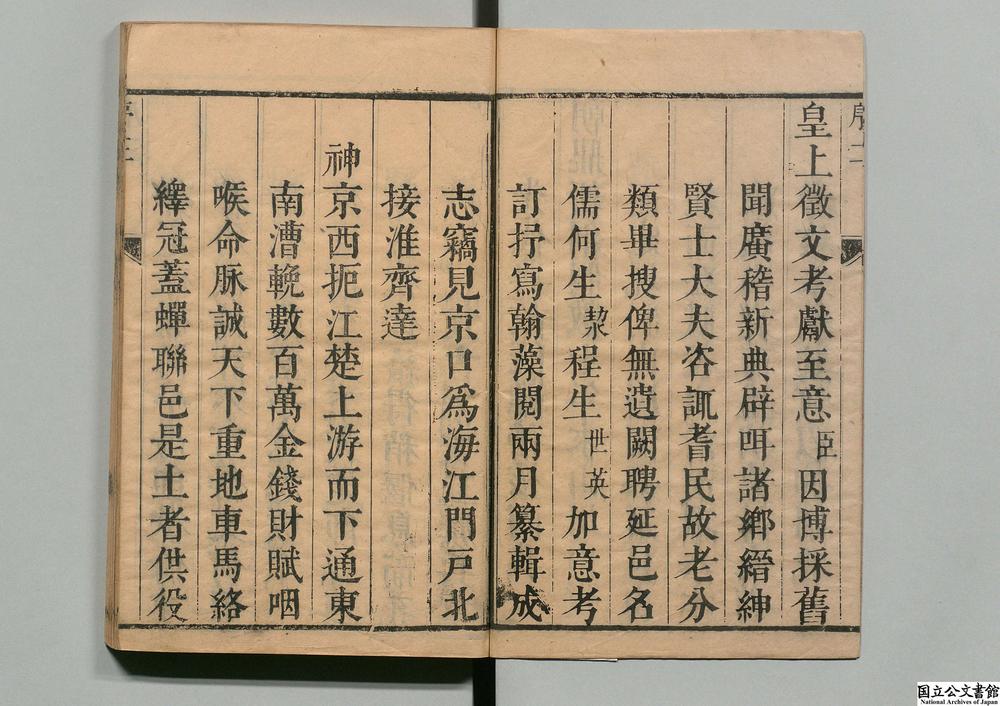 序二
皇上徵文考獻至意臣因博採舊
聞廣稽新典辟咡諸鄉縉紳
賢士大夫咨諏耆民故老分
類畢搜俾無遺闕聘延邑名
儒何生絜程生世英加意考
訂抒寫翰藻閱兩月纂輯成
志竊見京口為海江門戶北
接淮齊達
神京西扼江楚上游而下通東
南漕輓數百萬金錢財賦咽
喉命脉誠天下重地車馬絡
繹冠蓋蟬聯邑是土者供役
国立公文書館
National Archives of Japan